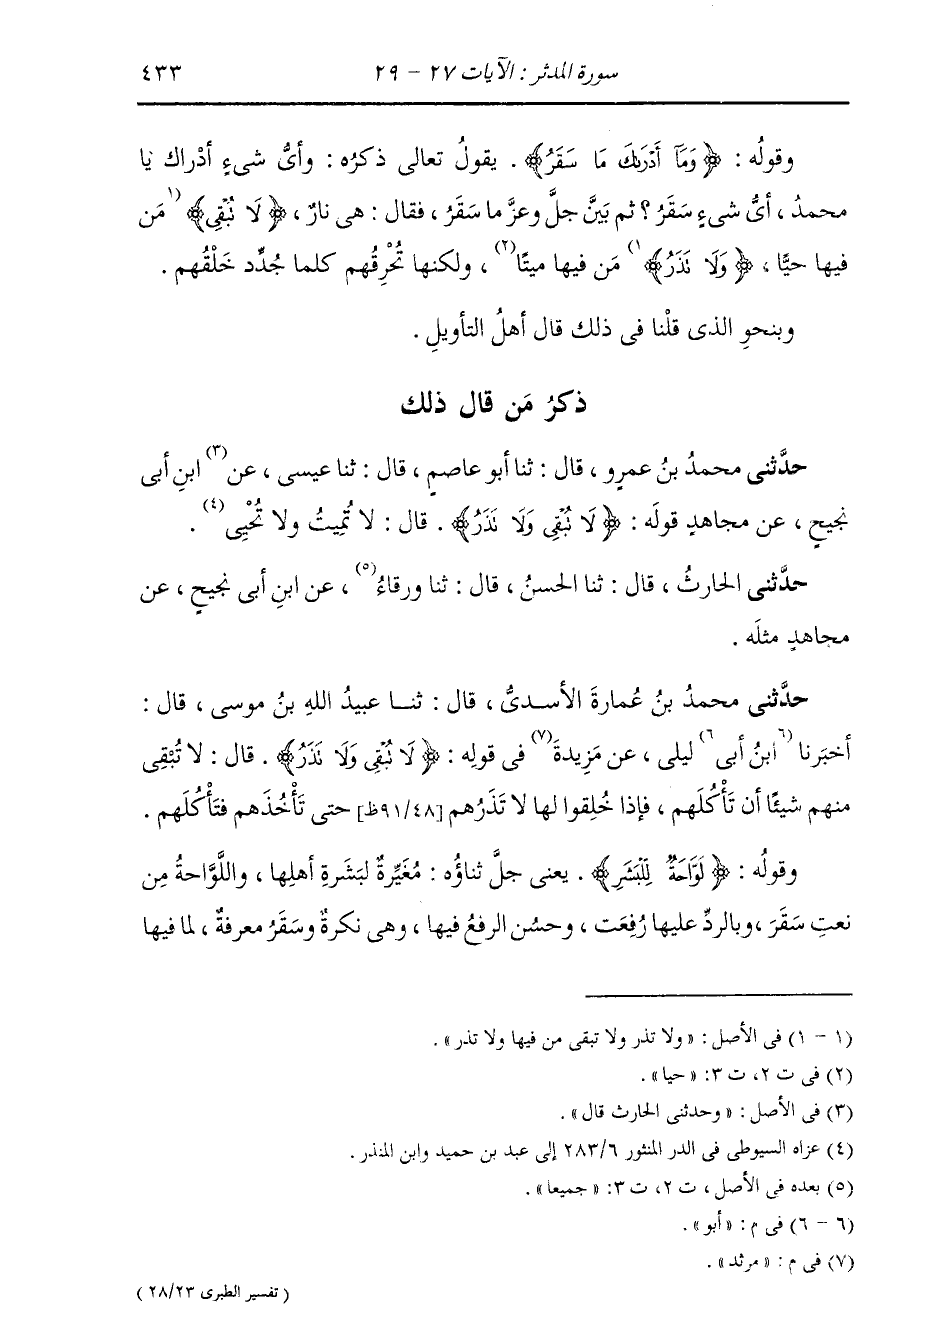 سورة المدثر : الآيات ٢٧ - ٢٩
٤٣٣
وقولُه : ﴿ وَمَآ أَدْرَىٰكَ مَا سَقَرُ ﴾ . يقولُ تعالى ذكرُه : وأىُّ شىءٍ أدْراك يا
محمدُ ، أىُّ شىءٍ سَقَرُ ؟ ثم بَيَّن جلَّ وعزَّ ما سَقَرُ ، فقال : هى نارٌ ، ﴿ لَا تُبْقِى ﴾ (١) مَن
فيها حيًّا ، ﴿ وَلَا نَذَرُ ﴾ (١) مَن فيها ميتًا (٢) ، ولكنها تُحْرِقُهم كلما جُدِّد خَلْقُهم .
وبنحوِ الذى قلْنا فى ذلك قال أهلُ التأويلِ .
ذكرُ مَن قال ذلك
حدَّثنى محمدُ بنُ عمرٍو ، قال : ثنا أبو عاصمٍ ، قال : ثنا عيسى ، عن (٣) ابنِ أبى
نجيحٍ ، عن مجاهدٍ قولَه : ﴿ لَا نُبْقِى وَلَا نَذَرُ ﴾ . قال : لا تُمِيتُ ولا تُحْيِى (٤) .
حدَّثنى الحارثُ ، قال : ثنا الحسنُ ، قال : ثنا ورقاءُ (٥) ، عن ابنِ أبى نجيحٍ ، عن
مجاهدٍ مثلَه .
حدَّثنى محمدُ بنُ عُمارةَ الأسدىُّ ، قال : ثنا عبيدُ اللهِ بنُ موسى ، قال :
أخبَرنا (٦ ابنُ أبى ٦) ليلى ، عن مَزِيدةَ (٧) فى قولِه : ﴿ لَا نُبْقِى وَلَا نَذَرُ ﴾ . قال : لا تُبْقِى
منهم شيئًا أن تَأْكُلَهم ، فإذا خُلِقوا لها لا تَذَرُهم [٩١/٤٨ظ] حتى تَأْخُذَهم فتَأْكُلَهم .
وقولُه : ﴿ لَوَّاحَةٌ لِلْبَشَرِ ﴾ . يعنى جلَّ ثناؤُه : مُغَيِّرةٌ لبَشَرةِ أهلِها ، واللَّوَّاحةُ مِن
نعتِ سَقَرَ ، وبالردِّ عليها رُفِعَت ، وحسُن الرفعُ فيها ، وهى نكرةٌ وسَقَرُ معرفةٌ ، لما فيها
(١ - ١) فى الأصل : « ولا تذر ولا تبقى من فيها ولا تذر » .
(٢) فى ت ٢، ت ٣: « حيا » .
(٣) فى الأصل : « وحدثنى الحارث قال » .
(٤) عزاه السيوطى فى الدر المنثور ٢٨٣/٦ إلى عبد بن حميد وابن المنذر .
(٥) بعده فى الأصل ، ت ٢، ت ٣: « جميعا » .
(٦ - ٦) فى م : « أبو » .
(٧) فى م : « مرثد » .
( تفسير الطبرى ٢٨/٢٣ )